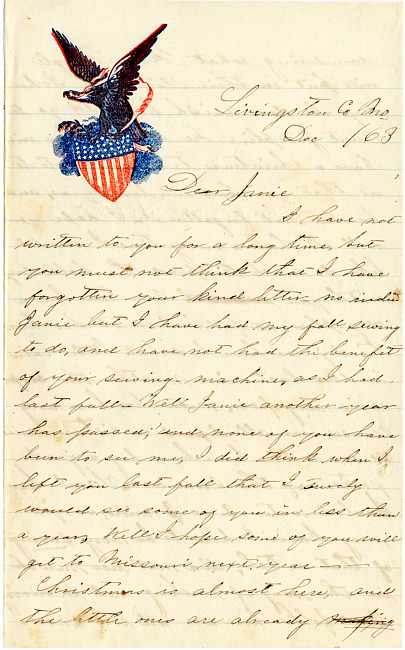 Livingston Co Mo
Dec /63
Dear Janie
I have not
written to you for a long time, but
you must not think that I have
forgotten your kind letter no indeed
Janie but I have had my fall sewing
to do, and have not had the benefit
of your sewing-machine, as I had
last fall - Well Janie another year
has passed, and none of you have
been to see me, I did think when I
left you last fall that I surely
would see some of you in less than
a year, Well I hope some of you will
get to Missouri next year -
Christmas is almost here, and
the little ones are already making